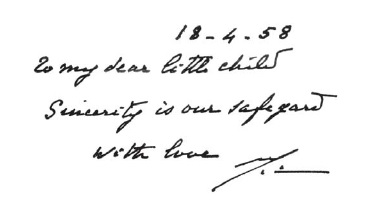 18-4-58
To my dear little child
Sincerity is our safegard
With love